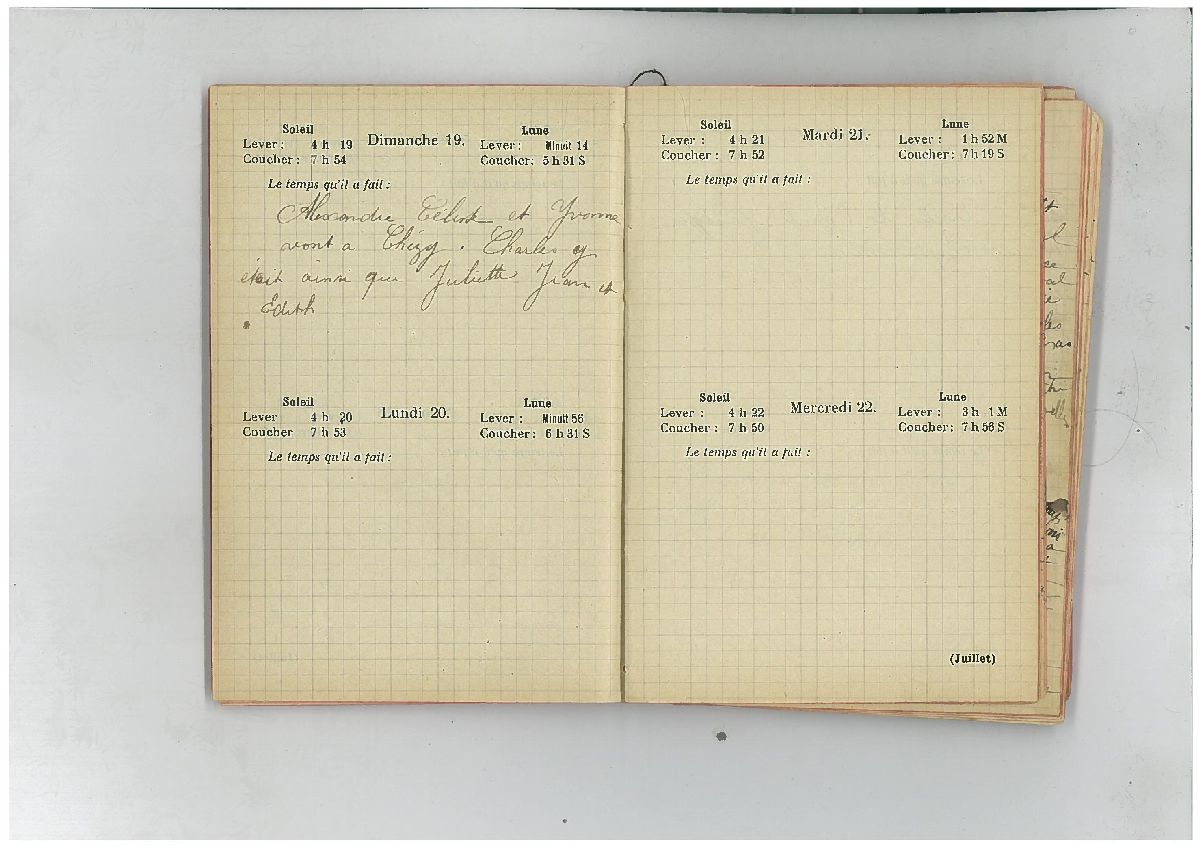 Soleil
Lever : 4 h 19
Coucher : 7 h 54
Dimanche 19.
Lune
Lever : Minuit 14
Coucher : 5 h 31 S
Le temps qu'il a fait :
Alexandre Céleste et Yvonne
vont a Chézy . Charles y
était ainsi que Juliette Jean et
Edith
Soleil
Lever 4 h 20
Coucher 7 h 53
Lundi 20.
Lune
Lever : Minuit 56
Coucher : 6 h 31 S
Le temps qu'il a fait :
Soleil
Lever : 4 h 21
Coucher : 7 h 52
Mardi 21.
Lune
Lever : 1 h 52 M
Coucher : 7 h 19 S
Le temps qu'il a fait :
Soleil
Lever : 4 h 22
Coucher : 7 h 50
Mercredi 22.
Lune
Lever : 3 h 1 M
Coucher : 7 h 56 S
Le temps qu'il a fait :
(Juillet)